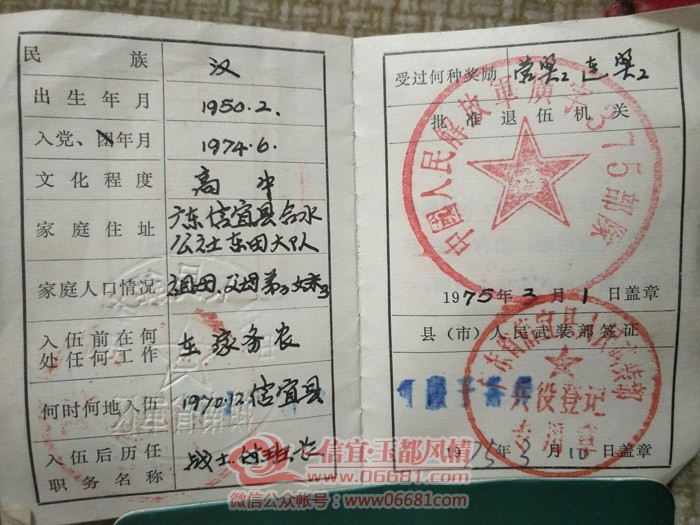 民族 汉
出生年月 1950.2.
入党、团年月 1974.6.
文化程度 高中
家庭住址 广东信宜县合水
公社东田大队
家庭人口情况 祖母、父母弟3妹3
入伍前在何
处任何工作 在家务农
何时何地入伍 1970.12.信宜县
入伍后历任
职务名称 战士 班长
受过何种奖励 营奖2 连奖2
批准退伍机关
中國人民解放軍广字375部隊
1975年3月1日盖章
县（市）人民武装部签证
兵役登记
专用章
1975年3月10日盖章
信宜·玉都风情
www.06681.com
微信公众帐号：www-06681-com